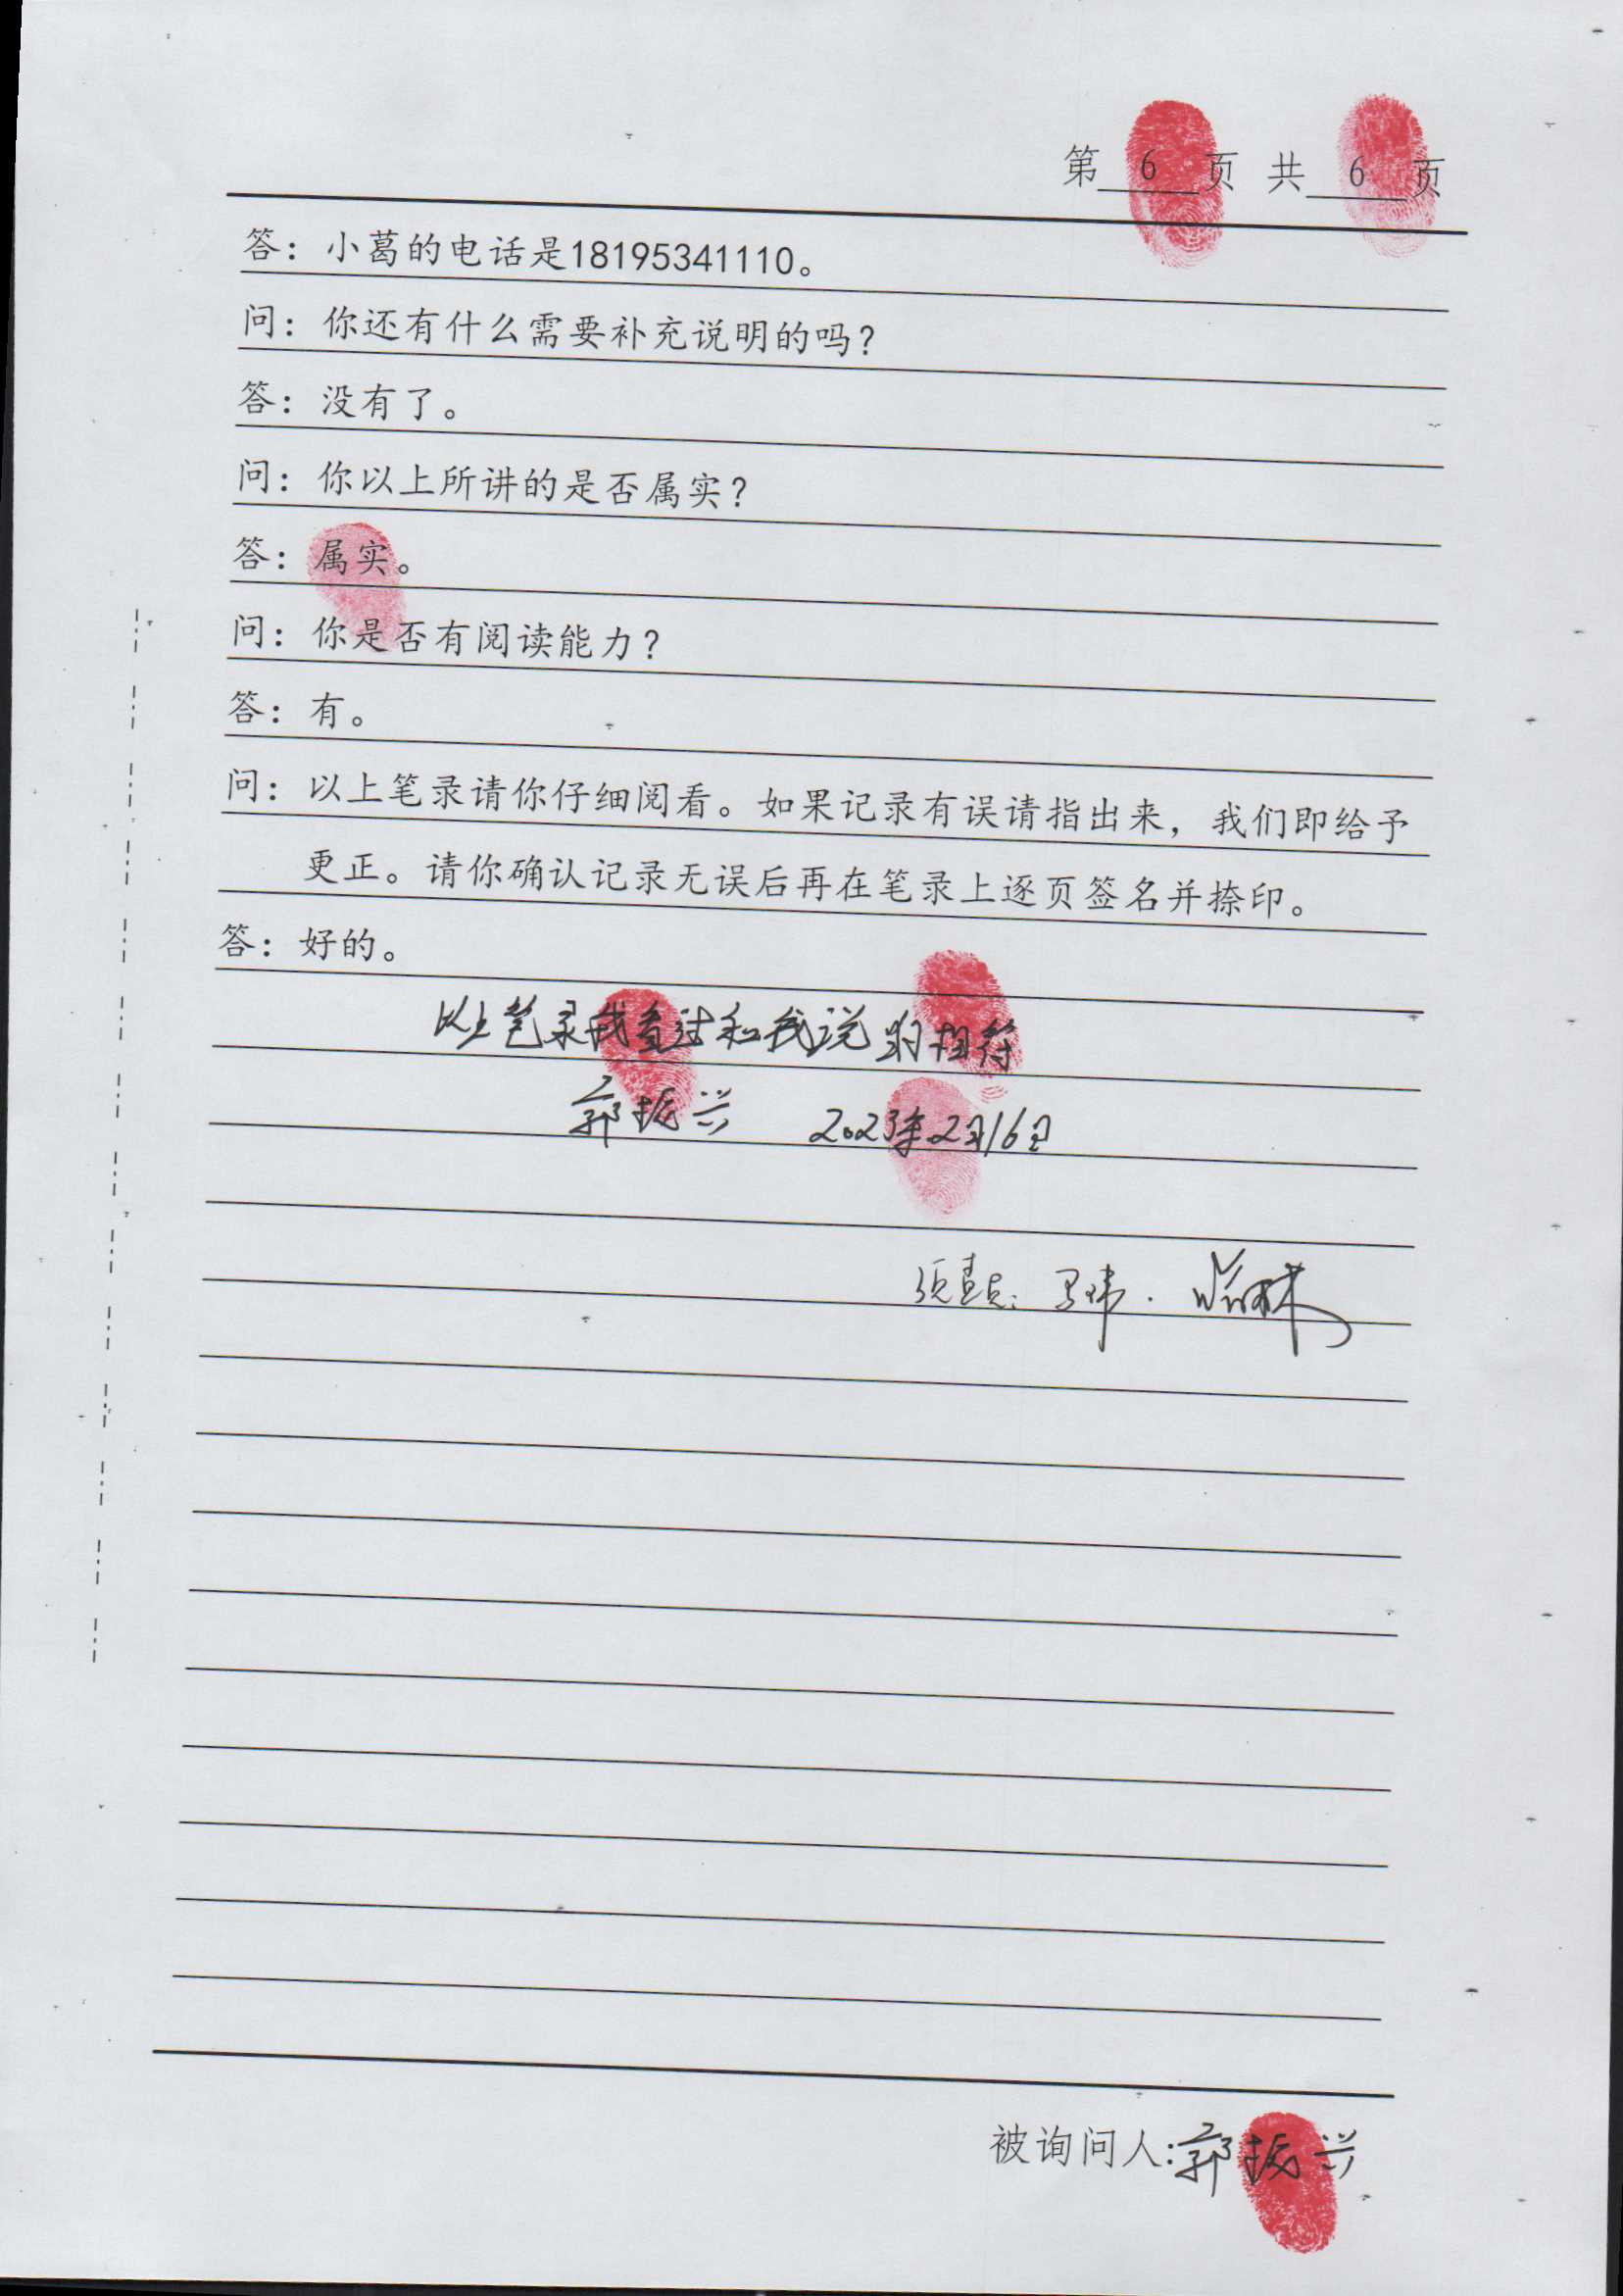 第 6 页 共 6 页
答：小葛的电话是18195341110。
问：你还有什么需要补充说明的吗？
答：没有了。
问：你以上所讲的是否属实？
答：属实。
问：你是否有阅读能力？
答：有。
问：以上笔录请你仔细阅看。如果记录有误请指出来，我们即给予
更正。请你确认记录无误后再在笔录上逐页签名并捺印。
答：好的。
以上笔录我看过和我说的相符
郭振兴 2023年2月16日
马玮.
被询问人:郭振兴